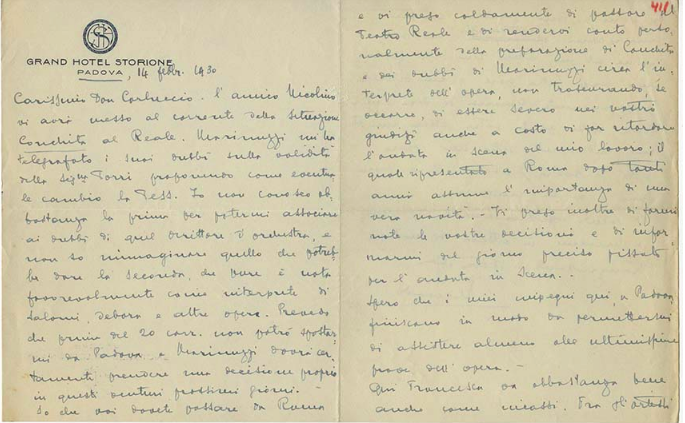 GRAND HOTEL STORIONE
PADOVA, 14 febbr. 1930
Carissimo Don Carluccio. L'amico Nicolino
vi avrà messo al corrente della situazione
Conchita al Reale. Marinuzzi mi ha
telegrafato i suoi dubbi sulla validità
della Signa Torri proponendo come eventua
le cambio la Tess. Io non conosco ab-
bastanza la prima per potermi associare
ai dubbi di quel direttore d'orchestra, e
non so immaginare quello che potreb
be dare la seconda, che pure è nota
favorevolmente come interprete di
Salomè, Debora e altre opere. Prevedo
che prima del 20 corr. non potrò spostar
mi da Padova, e Marinuzzi dovrà cer
tamente prendere una decisione proprio
in questi venturi prossimi giorni.
So che voi dovete passare da Roma
411
e vi prego caldamente di passare al
Teatro Reale e di rendervi conto perso
nalmente della preparazione di Conchita
e dei dubbi di Marinuzzi circa l'in-
terprete dell'opera, non trascurando, se
occorre, di essere severo nei vostri
giudizi anche a costo di far ritardare
l'andata in scena del mio lavoro; il
quale ripresentato a Roma dopo tanti
anni assume l'importanza di una
vera novità. - Vi prego inoltre di farmi
note le vostre decisioni e di infor
marmi del giorno preciso fissato
per l'andata in scena.
Spero che i miei impegni qui, a Padova,
finiscano in modo da permettermi
di assistere almeno alle ultimissime
prove dell'opera. -
Qui Francesca va abbastanza bene
anche come incassi. Fra gli artisti